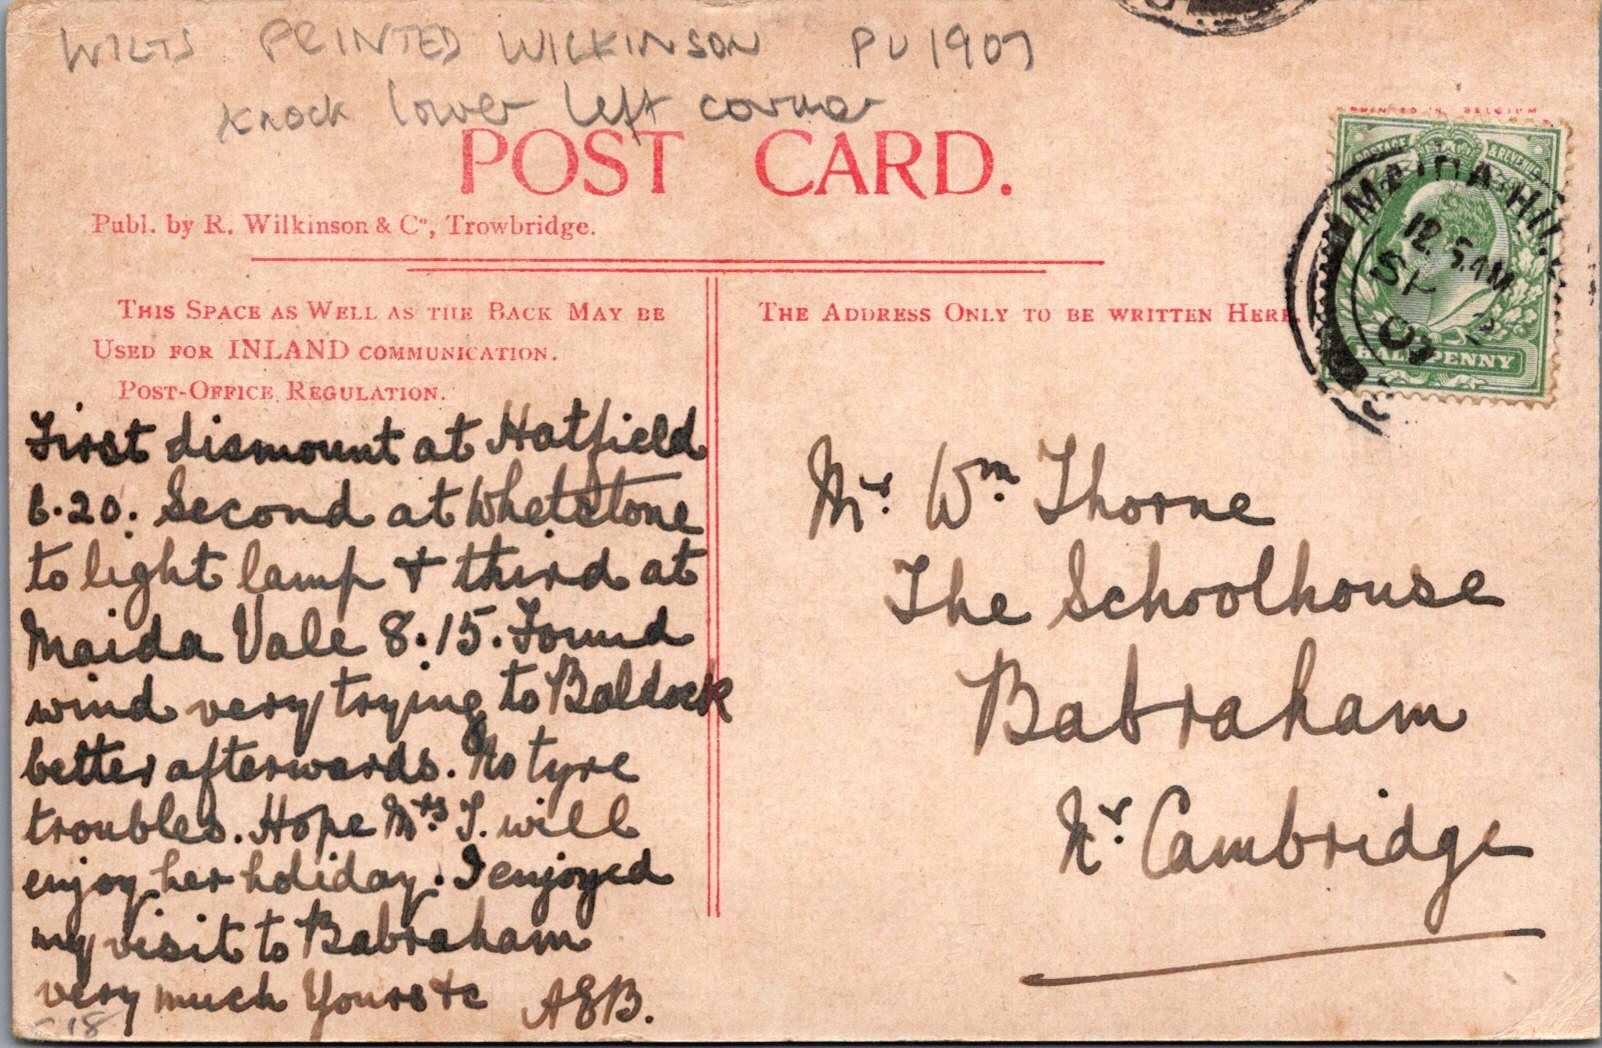 WILTS PRINTED WILKINSON PU 1907
knock lower left corner
POST CARD.
Publ. by R. Wilkinson & Co, Trowbridge.
PRINTED IN BELGIUM
POSTAGE & REVENUE
MAIDA HILL
12.5AM
SP 2
07
HALFPENNY
This Space as Well as the Back May be
Used for INLAND communication.
Post-Office Regulation.
The Address Only to be written Here.
First dismount at Hatfield
6.20. Second at Whetstone
to light lamp & third at
Maida Vale 8.15. Found
wind very trying to Baldock
better afterwards. No tyre
troubles. Hope Mrs. T. will
enjoy her holiday. I enjoyed
my visit to Babraham
very much Yours &c AEB.
Mr. Wm. Thorne
The Schoolhouse
Babraham
Nr. Cambridge
18